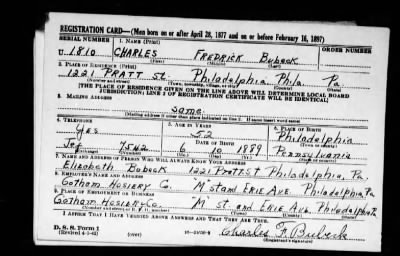 REGISTRATION CARD—(Men born on or after April 28, 1877 and on or before February 16, 1897)
SERIAL NUMBER 1. NAME (Print) ORDER NUMBER
U 1810 CHARLES FREDRICK Bubeck
(First) (Middle) (Last)
2. PLACE OF RESIDENCE (Print)
1221 PRATT St. Philadelphia Phila. Pa.
(Number and street) (Town, township, village, or city) (County) (State)
[THE PLACE OF RESIDENCE GIVEN ON THE LINE ABOVE WILL DETERMINE LOCAL BOARD
JURISDICTION; LINE 2 OF REGISTRATION CERTIFICATE WILL BE IDENTICAL]
3. MAILING ADDRESS
Same
[Mailing address if other than place indicated on line 2. If same insert word same]
4. TELEPHONE 5. AGE IN YEARS 6. PLACE OF BIRTH
Yes 52 Philadelphia
DATE OF BIRTH (Town or county)
Jef 7542 6 10 1889 Pennsylvania
(Exchange) (Number) (Mo.) (Day) (Yr.) (State or country)
7. NAME AND ADDRESS OF PERSON WHO WILL ALWAYS KNOW YOUR ADDRESS
Elizabeth Bubeck 1221 Pratt St Philadelphia, Pa
8. EMPLOYER'S NAME AND ADDRESS
Gotham Hosiery Co. M St and Erie Ave. Philadelphia, Pa
9. PLACE OF EMPLOYMENT OR BUSINESS
Gotham Hosiery Co. M St. and Erie Ave. Philadelphia Pa
(Number and street or R. F. D. number) (Town) (County) (State)
I AFFIRM THAT I HAVE VERIFIED ABOVE ANSWERS AND THAT THEY ARE TRUE.
D. S. S. Form 1
(Revised 4-1-42) (over) Charles F. Bubeck
(Registrant's signature)